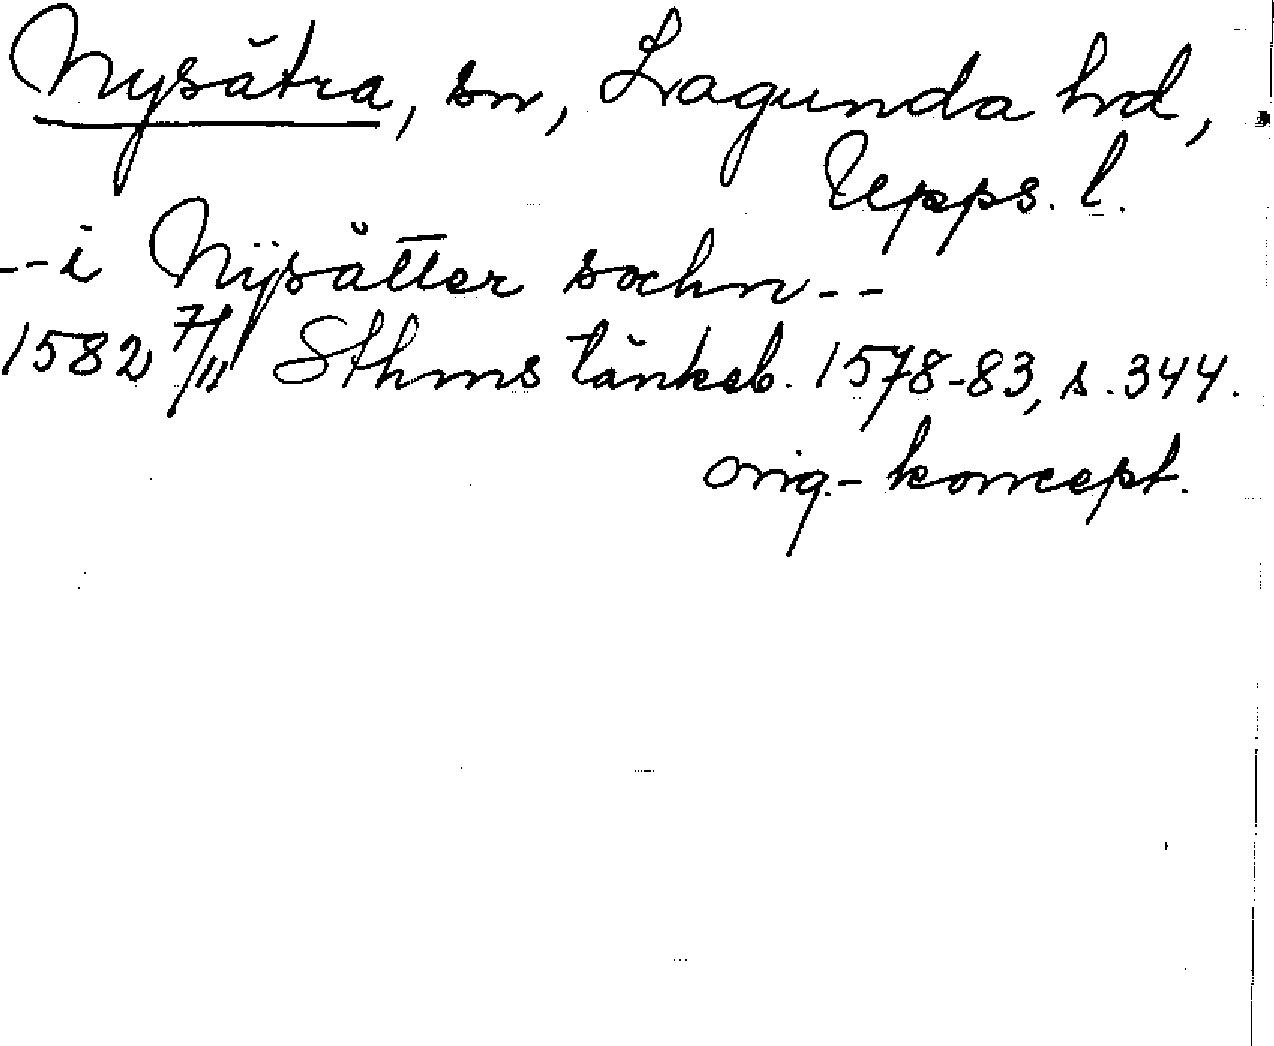 Nysätra, sn, Lagunda hrd,
Upps. l.
-- i Nÿsätter sochn --
1582 7/11 Sthms tänkeb. 1578-83, s. 344.
orig.- koncept.